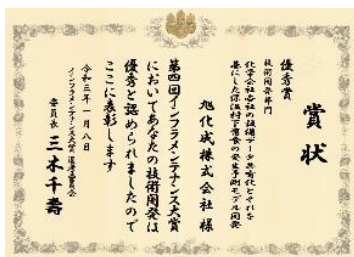 賞状
優秀賞
技術開発部門
化学会社各社の設備データ共有化とそれを
基にした保温材下腐食の発生予測モデル開発
旭化成株式会社 様
第四回インフラメンテナンス大賞
においてあなたの技術開発は
優秀と認められましたので
ここに表彰します
令和三年一月八日
インフラメンテナンス大賞 選考委員会
委員長 三木千壽